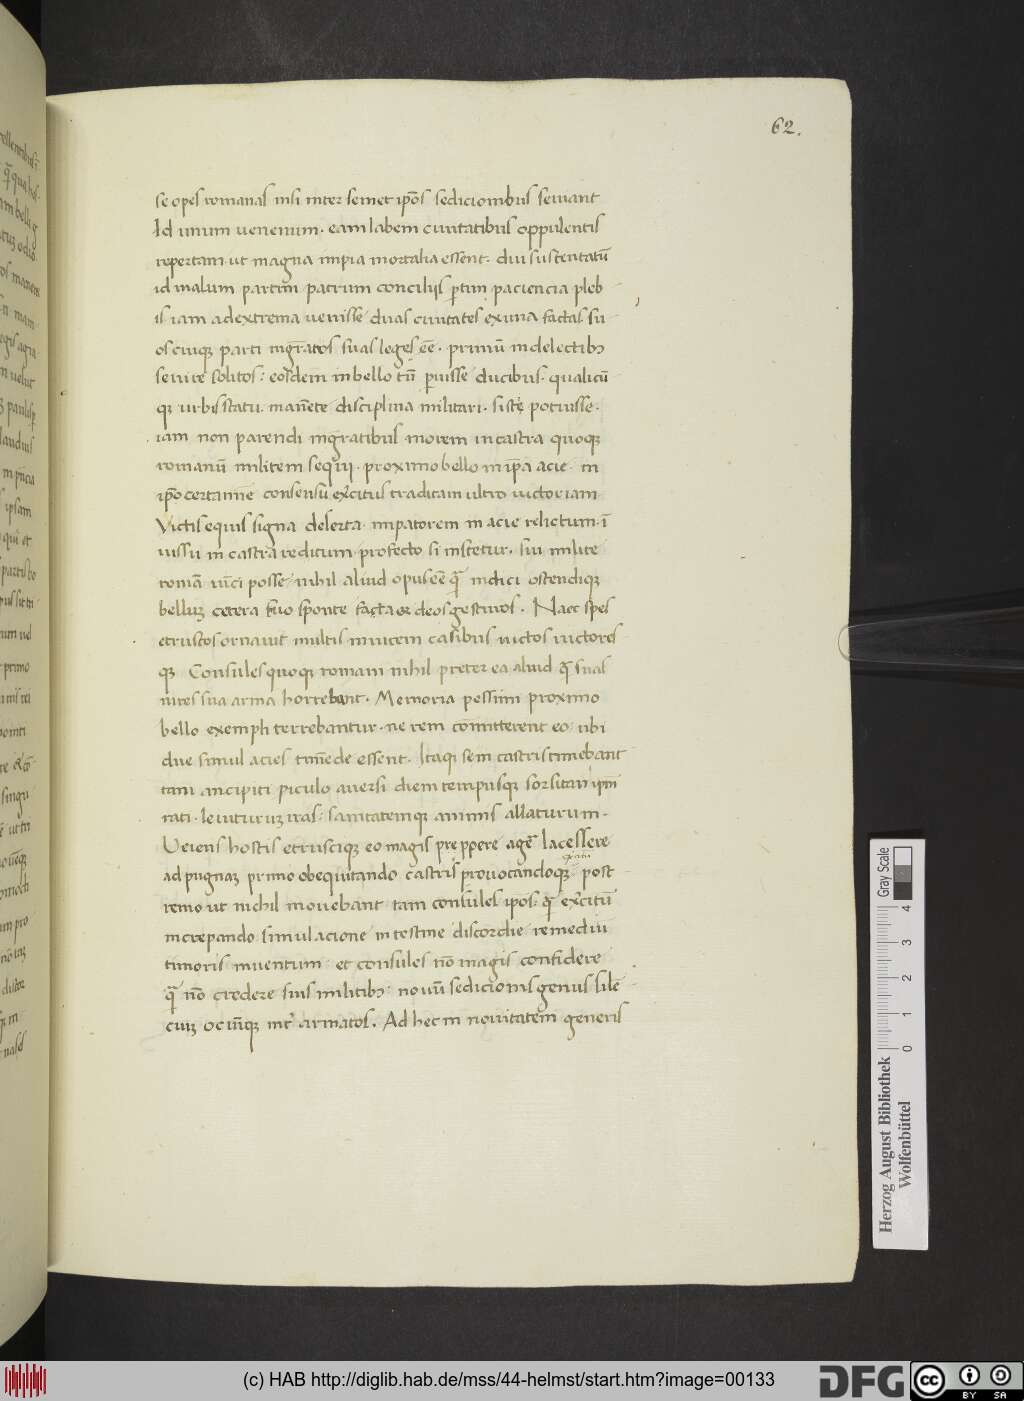 62.
se opes romanas nisi inter semet ip̄os sedicionibus seruant
Id unum uenenum. eam labem ciuitatibus oppulentis
repertam. ut magna inpia mortalia essent. diu sustentatū
id malum partim patrum concilijs ꝑtim paciencia pleb
is iam ad extrema uenisse duas ciuitates ex una factas. su
os cuiqꝫ parti mgratos suas leges eē. primū in delectibꝫ
seuire solitos: eosdem in bello tn̄ ꝑuisse ducibus. qualicū
qꝫ urbis statu. manēte disciplina militari. sistę potuisse.
iam non parendi mgratibus morem in castra quoqꝫ
romanū militem sequi. proximo bello in ip̄a acie. in
ip̄o certamīe consensu exercitus traditam ultro uictoriam
Victis equis signa deserta. inpatorem in acie relictum. ī
iussu in castra reditum. profecto si instetur. sui milite
romā uīci posse. nihil aliud opus eē qᷓ indici ostendiqꝫ
bellum cetera suo sponte facta & deos gesturos. Haec spes
etruscos ornauit multis inuicem casibus uictos uictores
qꝫ Consules quoqꝫ romani nihil preter ea aliud qᷓ suas
uires sua arma horrebant. Memoria pessimi proximo
bello exempli terrebantur. ne rem cōmitterent eo. ubi
due simul acies timēde essent. Itaqꝫ se in castris tinebant
tam ancipiti piculo auersi diem tempusqꝫ forsitan ipm̄
irati. leniturum iras: sanitatemqꝫ animis allaturum.
Veiens hostis etrusciqꝫ eo magis preppere agē lacessere
ad pugnam primo obequitando castris prouocandoqꝫ post
remo ut nichil mouebant tam consules ip̄os. qᷓ exercitū
increpando simulacione intestine discordie remediū
timoris inuentum. et consules nō magis confidere
qᷓ nō credere suis militibꝫ. nouū sedicionis genus silē
cium ociūqꝫ int̄ armatos. Ad hec in nouitatem generis
Herzog August Bibliothek
Wolfenbüttel
Gray Scale
0 1 2 3 4
(c) HAB http://diglib.hab.de/mss/44-helmst/start.htm?image=00133
DFG
cc BY SA